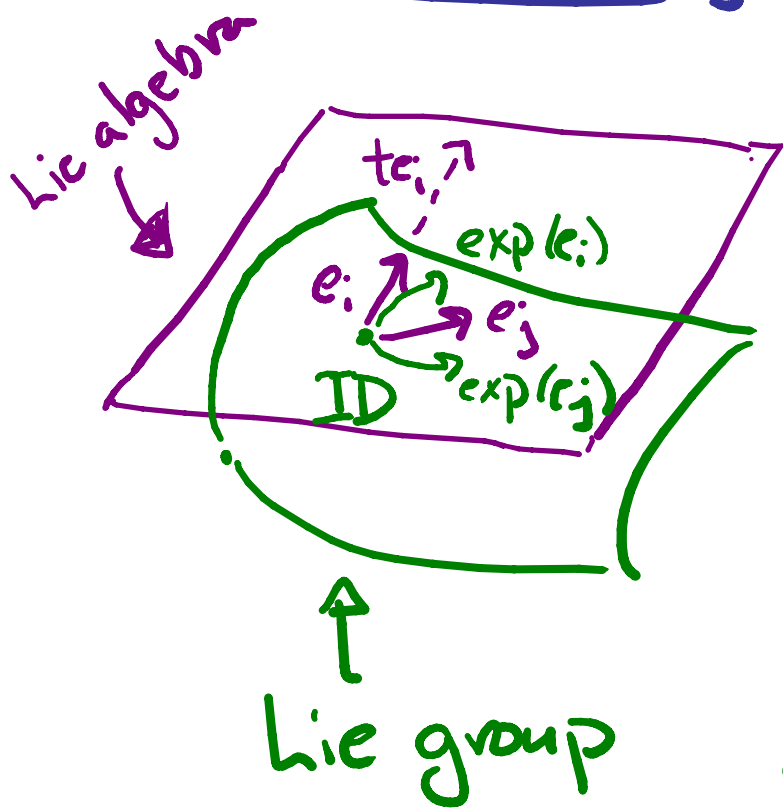 Lie algebra
te_i
exp(e_i)
e_i
e_j
exp(e_j)
ID
Lie group